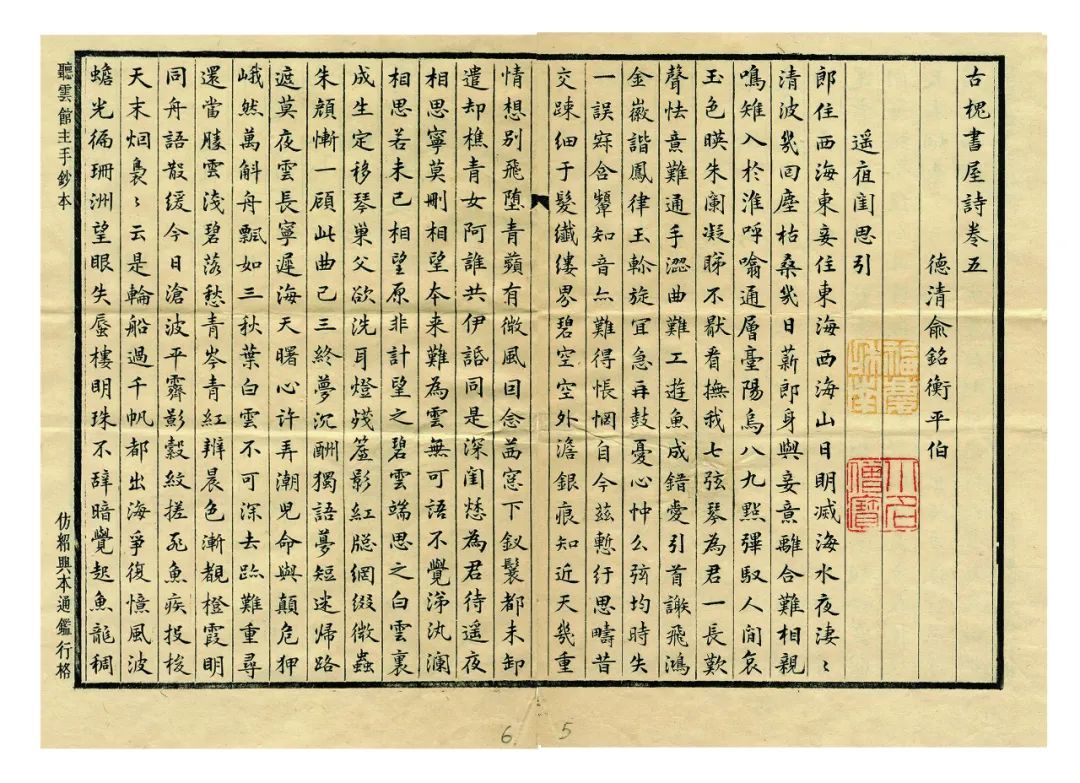 古槐書屋詩卷五
德清俞銘衡平伯
遥夜閨思引
郎住西海東妾住東海西海山日明滅海水夜淒〻
清波幾回塵枯桑幾日薪郎身與妾意離合難相親
鳴雉入於淮呼噏通層臺陽烏八九點彈馭人間哀
玉色暎朱闌凝睇不猒看撫我七弦琴為君一長歎
聲怯意難通手澀曲難工遊魚成錯愛引首謝飛鴻
金徽諧鳳律玉軫旋宜急再鼓憂心忡么弦均時失
一誤寐含顰知音亦難得悵惘自今茲慙紆思疇昔
交踈细于髮纖縷界碧空空外澹銀痕知近天幾重
情想別飛堕青蘋有微風回念茜窓下釵鬟都未卸
遣却樵青女阿誰共伊話同是深閨愁為君待遥夜
相思寧莫刪相望本來難為雲無可語不覺涕汍瀾
相思若未已相望原非計望之碧雲端思之白雲裏
成生定移琴巢父欲洗耳燈殘簦影紅牕網綴微蟲
朱顏慚一顧此曲已三終夢沉酬獨語夢短迷帰路
遮莫夜雲長寧遲海天曙心许弄潮兒命與顛危狎
峨然萬斛舟飄如三秋葉白雲不可深去跡難重尋
還當勝雲淺碧落愁青岑青紅辨晨色漸覩橙霞明
同舟語散缓今日滄波平霽影縠紋搓飛魚疾投梭
天末烟裊〻云是輪船過千帆都出海爭復憶風波
蟾光徧珊洲望眼失蜃樓明珠不辞暗覺起魚龍稠
聽雲館主手鈔本
仿紹興本通鑑行格
6
5